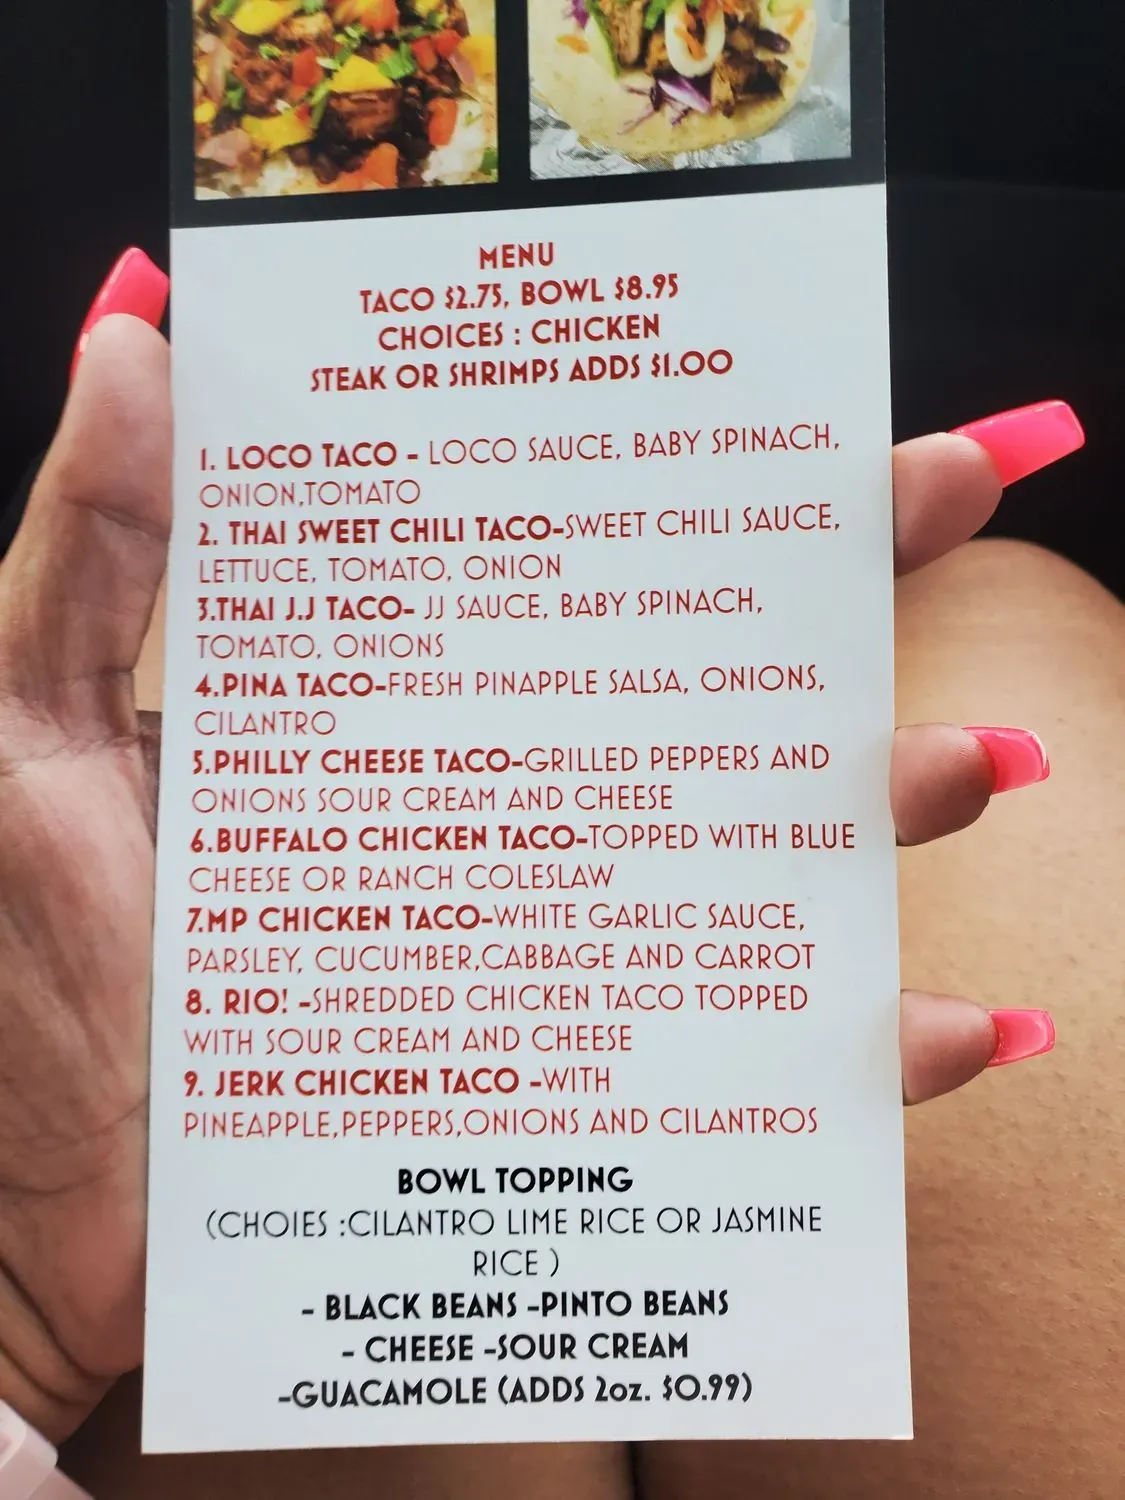 MENU
TACO $2.75, BOWL $8.95
CHOICES : CHICKEN
STEAK OR SHRIMPS ADDS $1.00
1. LOCO TACO - LOCO SAUCE, BABY SPINACH,
ONION,TOMATO
2. THAI SWEET CHILI TACO-SWEET CHILI SAUCE,
LETTUCE, TOMATO, ONION
3.THAI J.J TACO- JJ SAUCE, BABY SPINACH,
TOMATO, ONIONS
4.PINA TACO-FRESH PINAPPLE SALSA, ONIONS,
CILANTRO
5.PHILLY CHEESE TACO-GRILLED PEPPERS AND
ONIONS SOUR CREAM AND CHEESE
6.BUFFALO CHICKEN TACO-TOPPED WITH BLUE
CHEESE OR RANCH COLESLAW
7.MP CHICKEN TACO-WHITE GARLIC SAUCE,
PARSLEY, CUCUMBER,CABBAGE AND CARROT
8. RIO! -SHREDDED CHICKEN TACO TOPPED
WITH SOUR CREAM AND CHEESE
9. JERK CHICKEN TACO -WITH
PINEAPPLE,PEPPERS,ONIONS AND CILANTROS
BOWL TOPPING
(CHOIES :CILANTRO LIME RICE OR JASMINE
RICE )
- BLACK BEANS -PINTO BEANS
- CHEESE -SOUR CREAM
-GUACAMOLE (ADDS 2oz. $0.99)